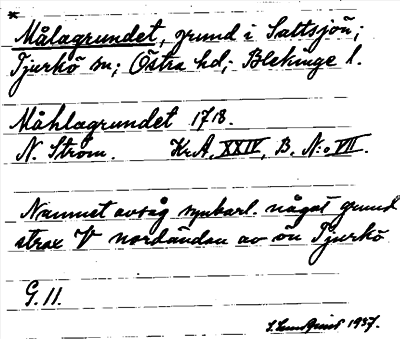 *
Målagrundet, grund i Saltsjön;
Tjurkö sn; Östra hd; Blekinge l.
Måhlagrundet 1718.
N. Ström. Kr.A. XXIV, B. N:o VII.
Namnet avsåg synbarl. något grund
strax V nordändan av ön Tjurkö
G. 11.
S. Lundquist 1937.